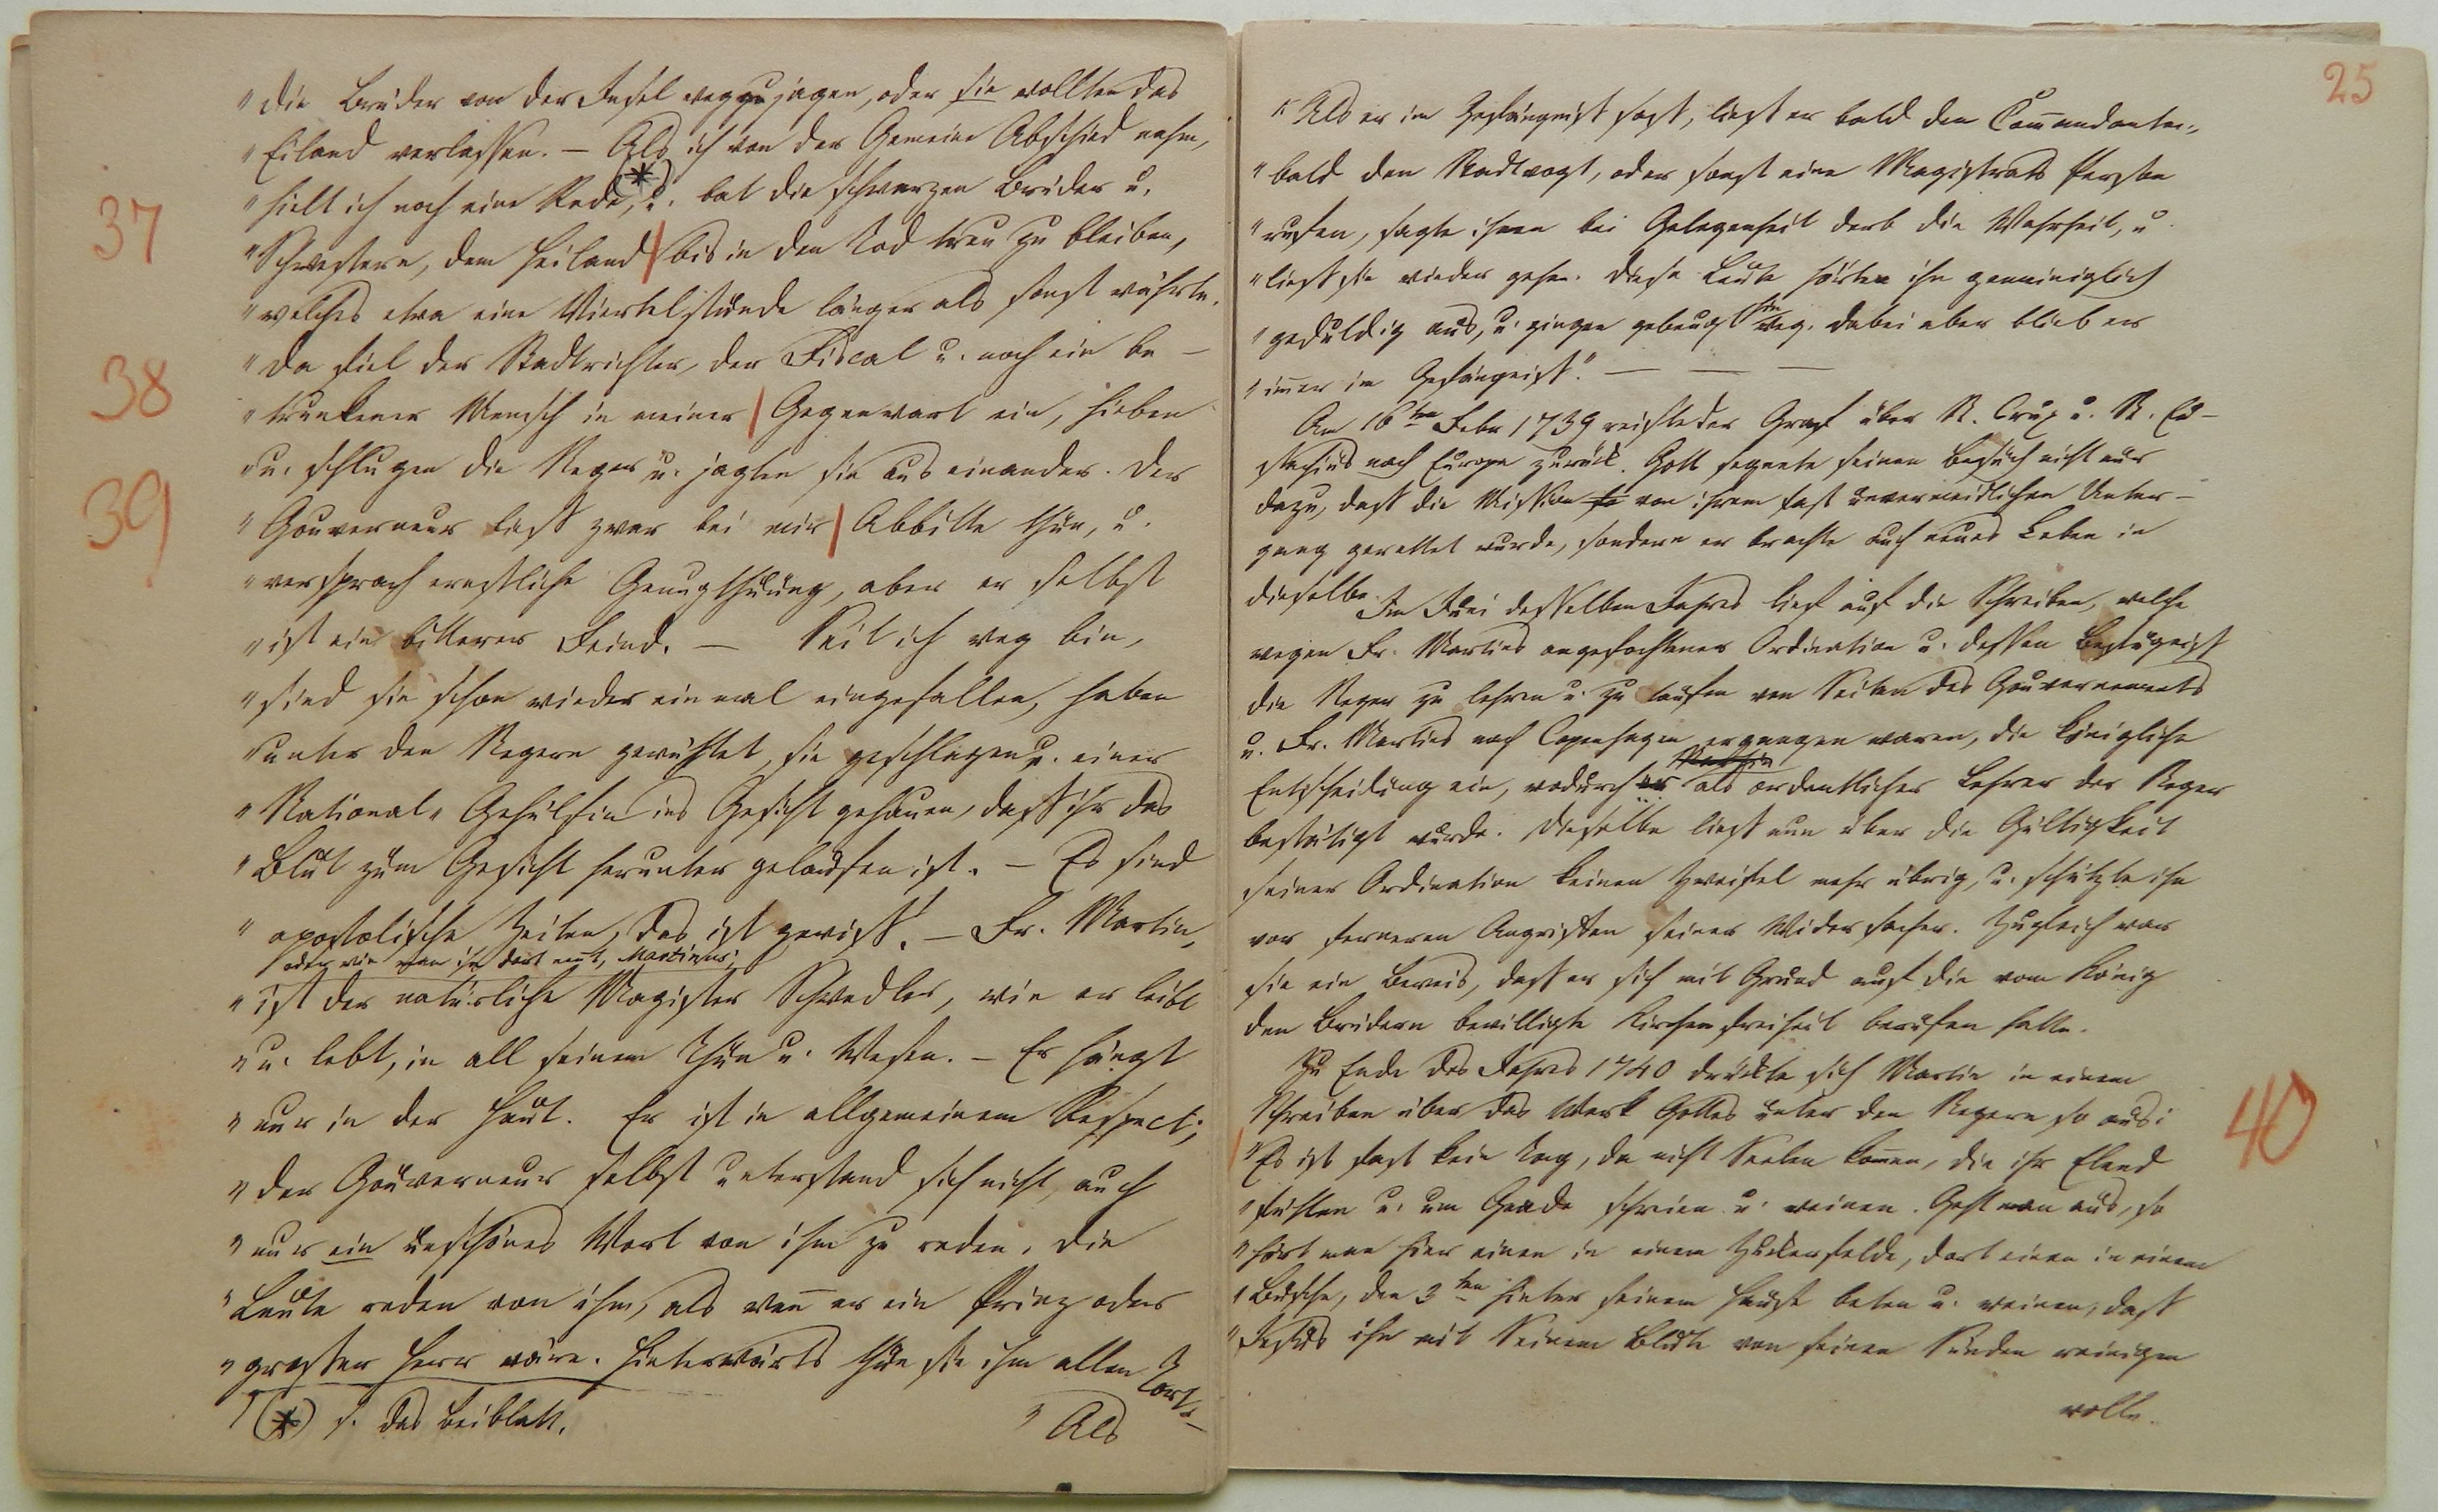 „die Brüder von der Insel wegzujagen, oder sie wollten das
„Eiland verlassen. – Als ich von der Gemeine Abschied nahm,
„hielt ich noch eine Rede, (*) u. bat die schwarzen Brüder u.
37
„Schwestern, dem Heiland | bis in den Tod treu zu bleiben,
„welches etwa eine Viertelstunde länger als sonst währte.
38
„Da fiel der Stadtrichter, der Fiscal u. noch ein be–
„trunkener Mensch in meiner | Gegenwart ein, hieben
„u. schlugen die Neger u. jagten sie aus einander. Der
39
„Gouverneur ließ zwar bei mir | Abbitte thun, u.
„versprach ernstliche Genugthuung, aber er selbst
„ist ein bitterer Feind. – Seit ich weg bin,
„sind sie schon wieder einmal eingefallen, haben
„unter den Negern gewüthet, sie geschlagen u. einer
„National-Gehülfin ins Gesicht gehauen, daß ihr das
„Blut zum Gesicht herunter gelaufen ist. – Es sind
„apostolische Zeiten, das ist gewiß. – Br. Martin,
oder wie man ihn dort nennt, Martinus,
„ist der natürliche Magister Schwedler, wie er leibt
„u. lebt, in all seinem Thun u. Wesen. – Er hängt
„nur in der Haut. Er ist in allgemeinem Respect;
„der Gouverneur selbst unterstand sich nicht, auch
„nur ein unschönes Wort von ihm zu reden. Die
„Leute reden von ihm, als wenn er ein Prinz oder
„großer Herr wäre. Hinterwärts thun sie ihm allen Tort.–
(*) s. das Beiblatt.
„Als
25
„Als er im Gefängniß saß, ließ er bald den Commandanten,
„bald den Stadtvogt, oder sonst eine Magistrats Person
„rufen, sagte ihnen bei Gelegenheit derb die Wahrheit, u.
„ließ sie wieder gehen. Diese Leute hörten ihn gemeiniglich
„geduldig aus, u. gingen gebeugt hinweg. Dabei aber blieb er
„immer im Gefängniß.“ – – –
Am 16ten Febr 1739 reiste der Graf über St. Crux u. St. Eu–
stachius nach Europa zurück. Gott segnete seinen Besuch nicht nur
dazu, daß die Mission von ihrem fast unvermeidlichen Unter–
gang gerettet wurde, sondern er brachte auch neues Leben in
dieselbe. Im Juni desselben Jahres lief auf die Schreiben, welche
wegen Br. Martins angefochtener Ordination u. dessen Befugniß
die Neger zu lehren u. zu taufen von Seiten des Gouvernements
u. Br. Martins nach Copenhagen ergangen waren, die königliche
Entscheidung ein, wodurch er als ordentlicher Lehrer der Neger
bestätigt wurde. Dieselbe ließ nun über die Gültigkeit
seiner Ordination keinen Zweifel mehr übrig, u. schützte ihn
vor ferneren Angriffen seiner Widersacher. Zugleich war
sie ein Beweis, daß er sich mit Grund auf die vom König
den Brüdern bewilligte Kirchenfreiheit berufen hatte.
Zu Ende des Jahres 1740 drückte sich Martin in einem
Schreiben über das Werk Gottes unter den Negern so aus:
40
|„Es ist fast kein Tag, da nicht Seelen kommen, die ihr Elend
„fühlen u. um Gnade schreien u. weinen. Geht man aus, so
„hört man hier einen in einem Zuckerfelde, dort einen in einem
„Busche, den 3ten hinter seinem Hause beten u. weinen, daß
„Jesus ihn mit Seinem Blute von seinen Sünden reinigen
wolle.